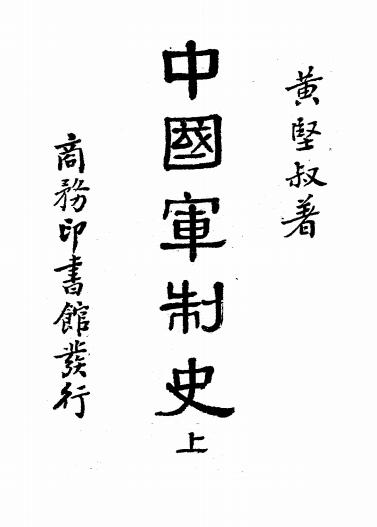 黃堅叔著
中國軍制史 上
商務印書館發行